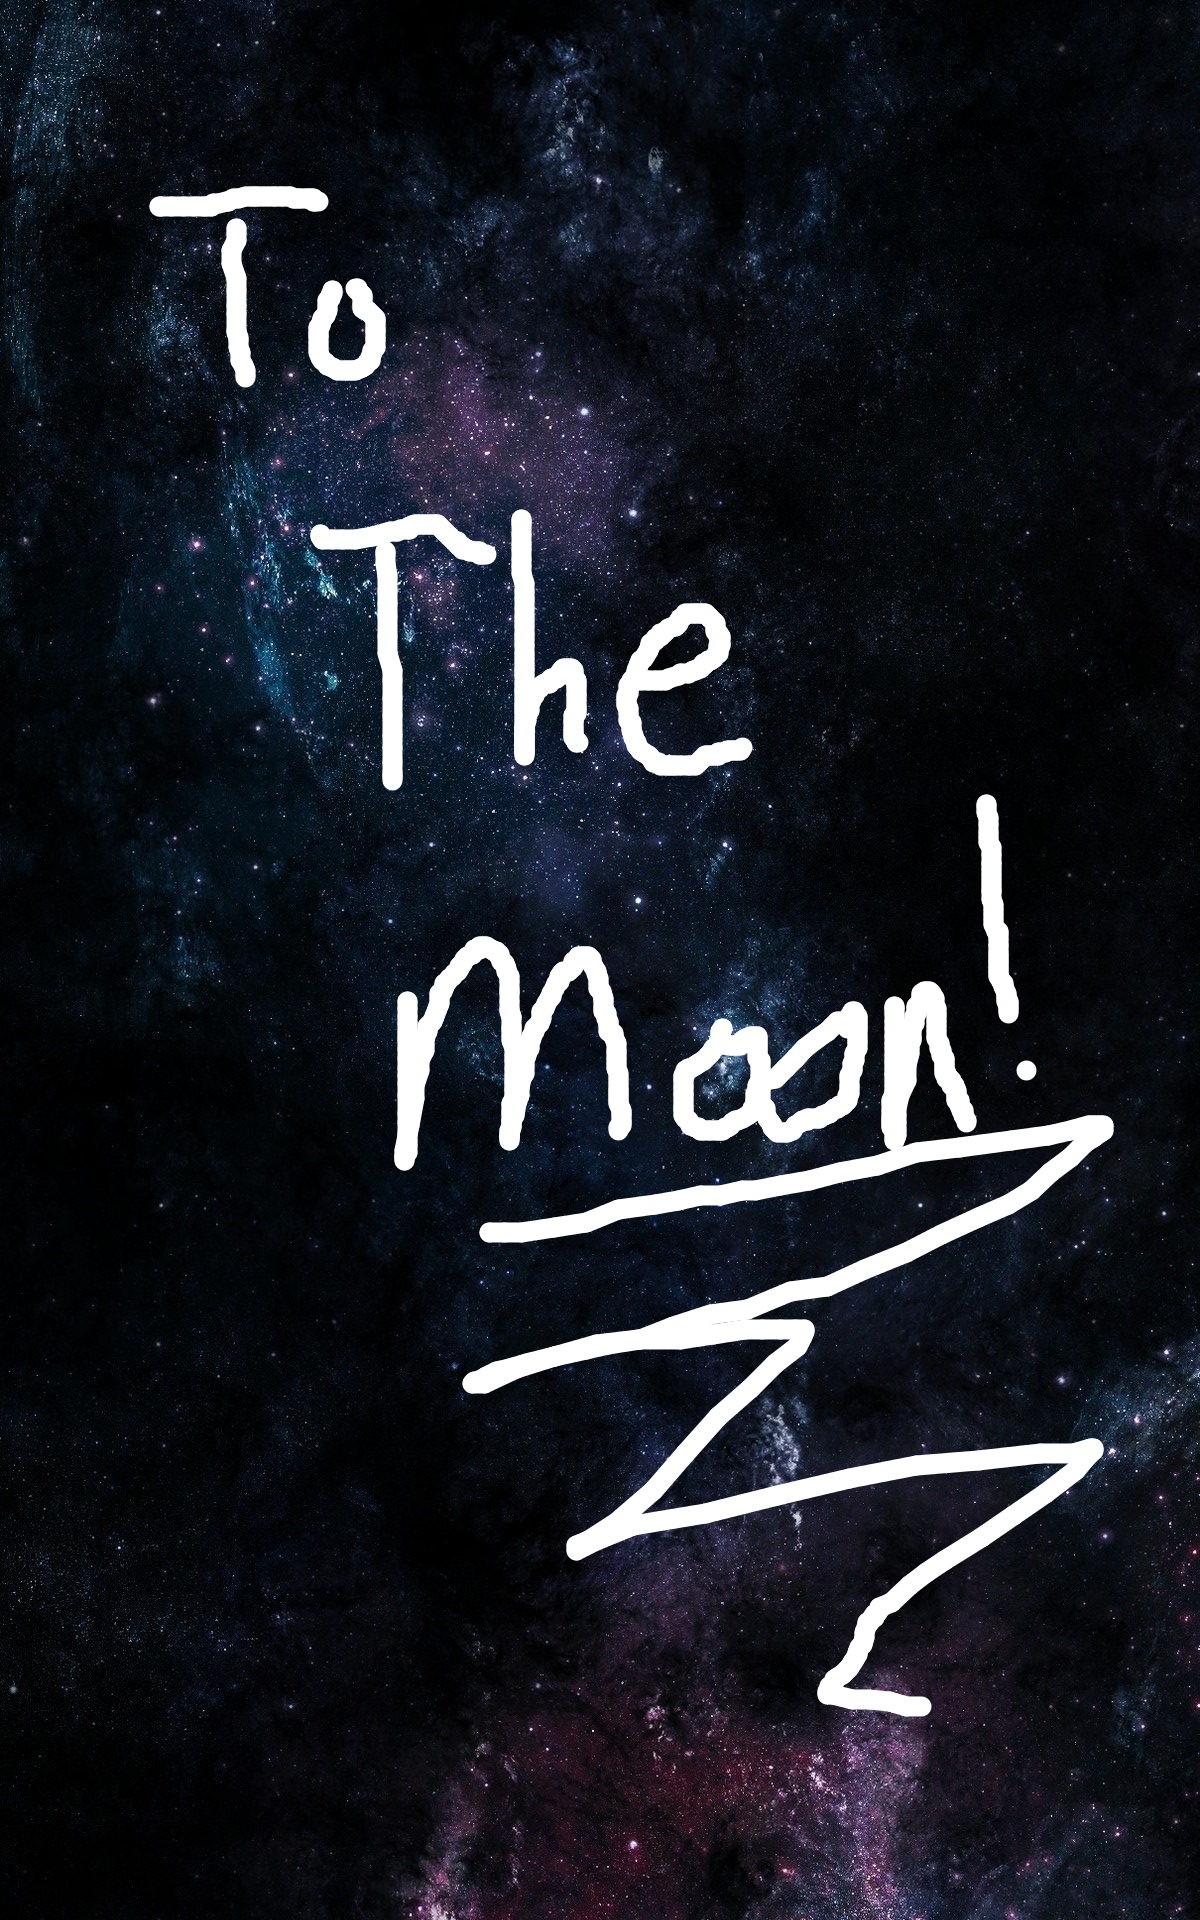 To
The
Moon!